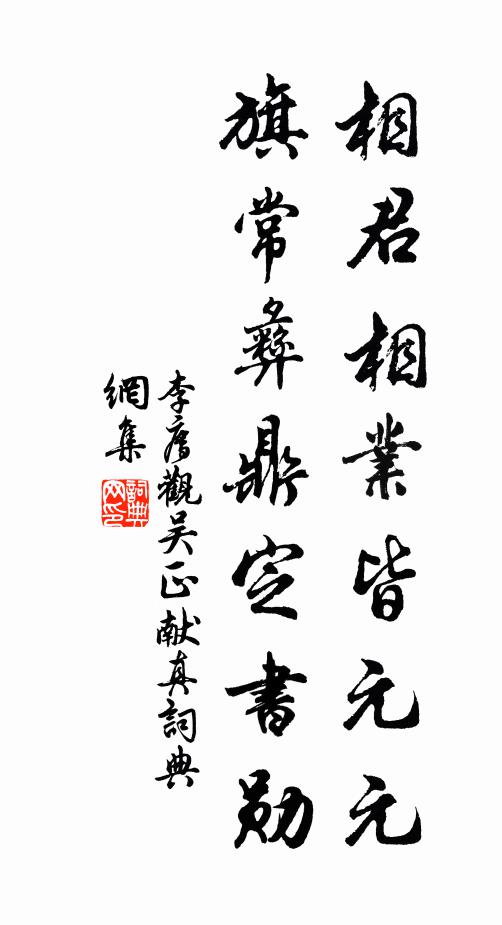 相君相業皆元元
旗常彝鼎定書勛
李廌觀吴正献真詞典
網集
詞典
网印